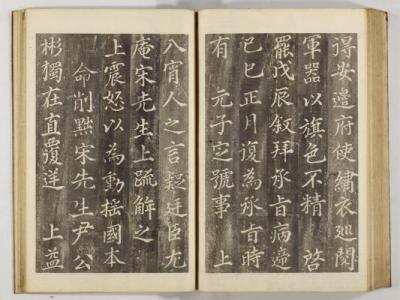 得安邊府使繡衣廵閱
軍器以旗色不精 啓
罷戊辰敘拜承旨病遆
己巳正月復為承旨時
有 元子定號事 上
入宵人之言疑廷臣尤
庵宋先生上疏解之
上震怒以為動搖國本
命削黜宋先生尹公
彬獨在直覆逆 上益